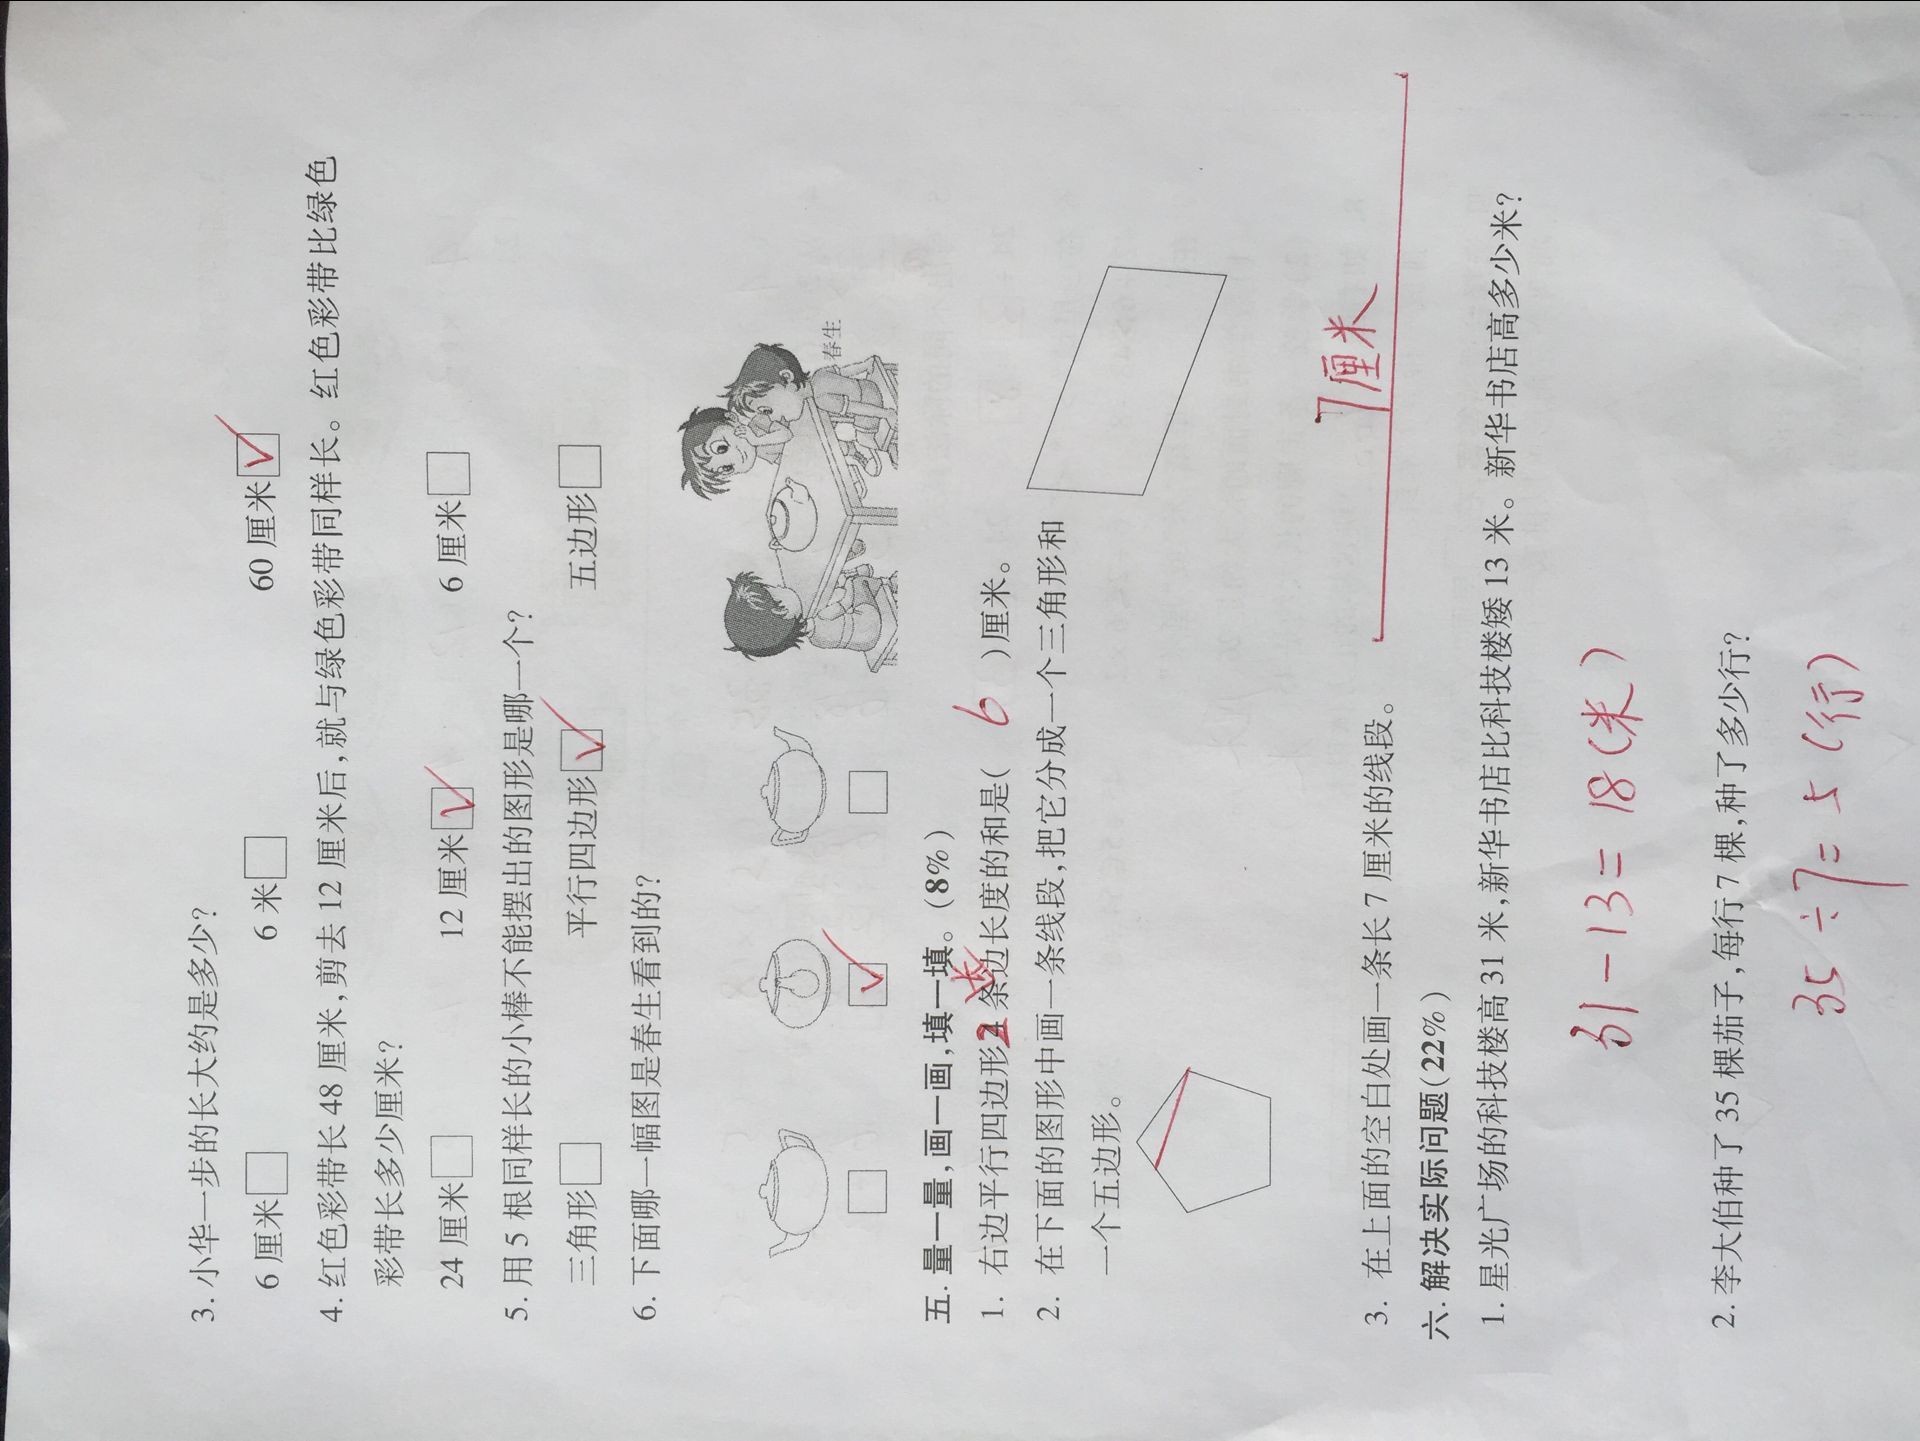 3. 小华一步的长大约是多少?
6 厘米□ 6 米□ 60 厘米☑
4. 红色彩带长 48 厘米,剪去 12 厘米后,就与绿色彩带同样长。红色彩带比绿色
彩带长多少厘米?
24 厘米□ 12 厘米☑ 6 厘米□
5. 用 5 根同样长的小棒不能摆出的图形是哪一个?
三角形□ 平行四边形☑ 五边形□
6. 下面哪一幅图是春生看到的?
春生
五. 量一量,画一画,填一填。(8%)
1. 右边平行四边形2条边长度的和是( 6 )厘米。
2. 在下面的图形中画一条线段,把它分成一个三角形和
一个五边形。
7厘米
3. 在上面的空白处画一条长 7 厘米的线段。
六. 解决实际问题(22%)
1. 星光广场的科技楼高 31 米,新华书店比科技楼矮 13 米。新华书店高多少米?
31-13=18(米)
2. 李大伯种了 35 棵茄子,每行 7 棵,种了多少行?
35÷7=5(行)